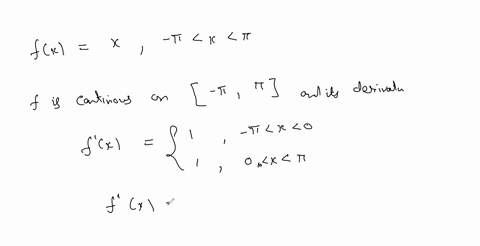 f(x) = x , -π < x < π
f is continous on [-π, π] and its derivatu
f'(x) = { 1 , -π < x < 0
1 , 0 < x < π
f'(x)